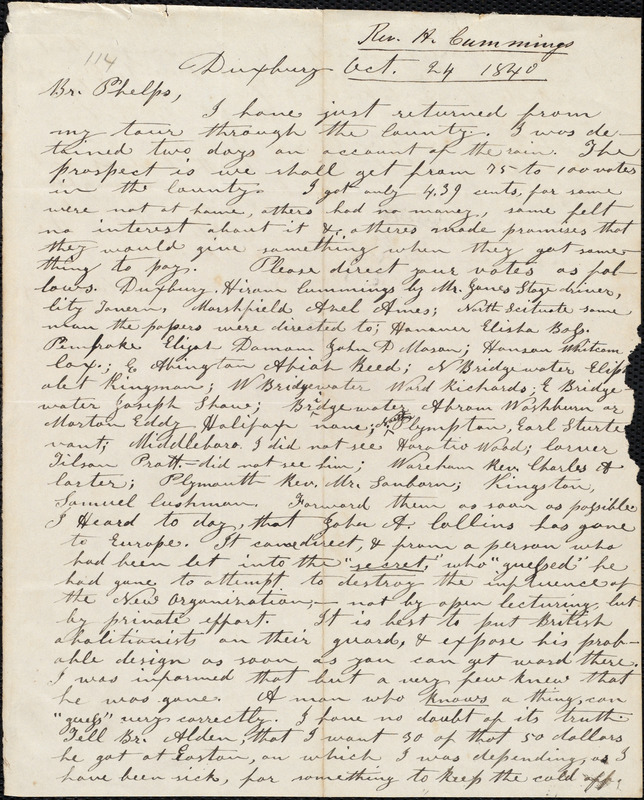 Rev. H. Cummings
114
Duxbury Oct. 24 1840
Br. Phelps,
I have just returned from
my tour through the county. I was de-
tained two days on account of the rain. The
prospect is we shall get from 75 to 100 votes
in the county. I got only 4.39 cents, for some
were not at home, others had no money, some felt
no interest about it &c. others made promises that
they would give something when they got some-
thing to pay. Please direct your votes as fol-
lows. Duxbury, Hiram Cummings by Mr. Jones Stage driver,
City Tavern, Marshfield Axel Ames; North Scituate same
man the papers were directed to; Hanover Elisha Bass.
Pembroke Elijah Damon John D Mason; Hanson Whitcom
Cox; E Abington Abiah Reed; N Bridgewater Elip
alet Kingman; W Bridgewater Ward Richards; E Bridge
water Joseph Shaw; Bridgewater Abram Washburn or
Morton Eddy Halifax none; North Plympton, Earl Sturte
vant; Middleboro I did not see Horatio Wood; Carver
Tilson Pratt.= did not see him; Wareham Rev. Charles A
Carter; Plymouth Rev. Mr. Sanborn; Kingston,
Samuel Cushman. Forward them as soon as possible
I Heard to day, that John A. Collins has gone
to Europe. It came direct, & from a person who
had been let into the "secret," who "guessed" he
had gone to attempt to destroy the influence of
the New Organization,— not by open lecturing, but
by private effort. It is best to put British
abolitionists on their guard, & expose his prob-
able design as soon as you can get word there.
I was informed that but a very few knew that
he was gone. A man who knows a thing, can
"guess" very correctly. I have no doubt of its truth.
Tell Br. Alden, that I want 30 of that 50 dollars
he got at Easton, on which I was depending, as I
have been sick, for something to keep the cold off.